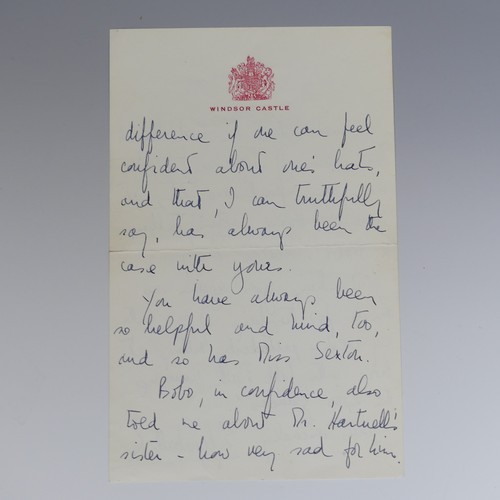 WINDSOR CASTLE
difference if one can feel
confident about one's hats,
and that, I can truthfully
say, has always been the
case with yours.
You have always been
so helpful and kind, too,
and so has Miss Sexton.
Bobo, in confidence, also
told me about Mr. Hartnell's
sister - how very sad for him.